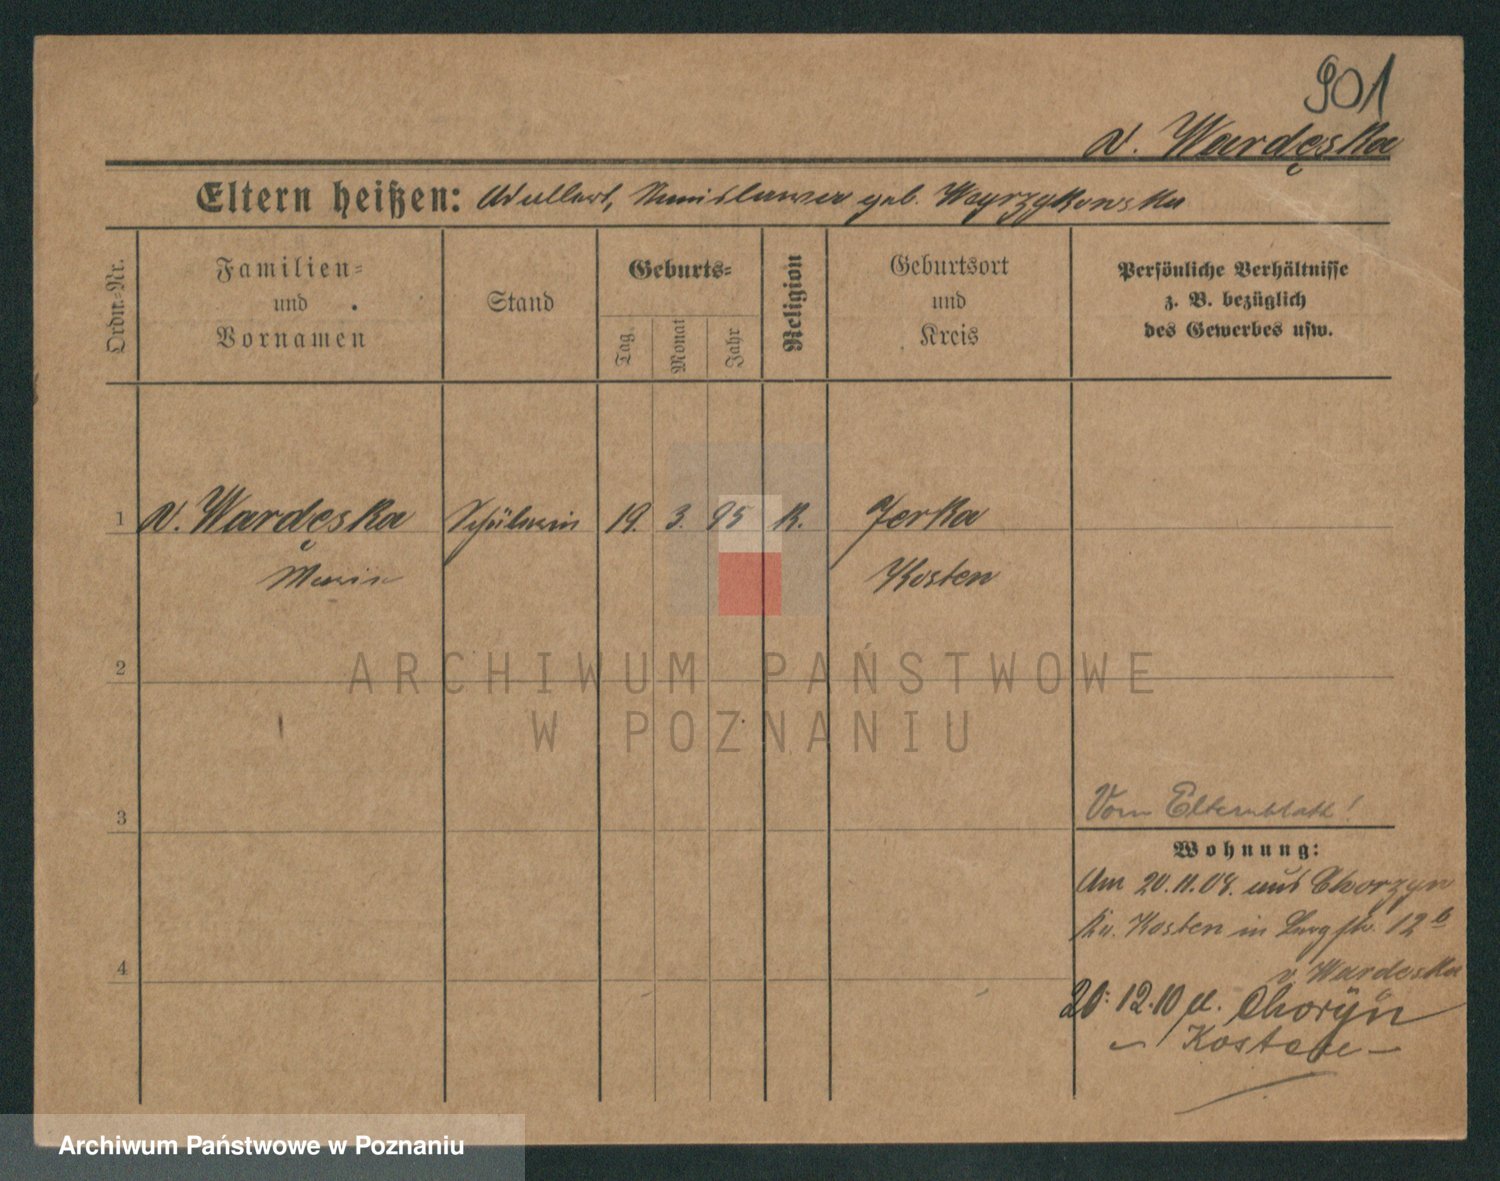 901
v. Wardęska
Eltern heißen: Adalbert, Stanislawa geb. Wyrzykowska
Ordn.-Nr.
Familien-
und
Vornamen
Stand
Geburts-
Tag
Monat
Jahr
Religion
Geburtsort
und
Kreis
Persönliche Verhältnisse
z. B. bezüglich
des Gewerbes usw.
1 v. Wardęska Schülerin 19. 3. 95 K. Jerka
Maria Kosten
2
ARCHIWUM PAŃSTWOWE
W POZNANIU
Vom Elternblatt!
3
Wohnung:
Am 20.11.08. aus Choryn
Kr. Kosten in 12 b
4
v. Wardęska
20. 12.10 n. Choryn
Kosten
Archiwum Państwowe w Poznaniu